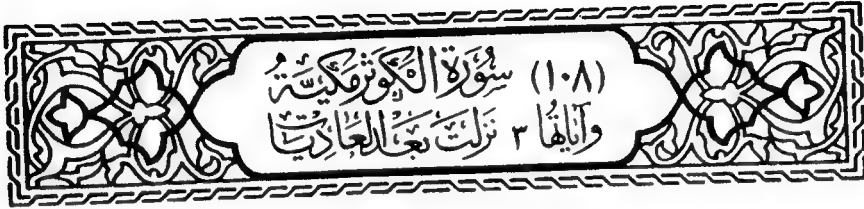 (١٠٨) سُورَةُ الكَوثَر مَكِيَّةٌ
وَآيَاتُهَا ٣ نَزَلَتْ بَعْدَ العَادِيَات